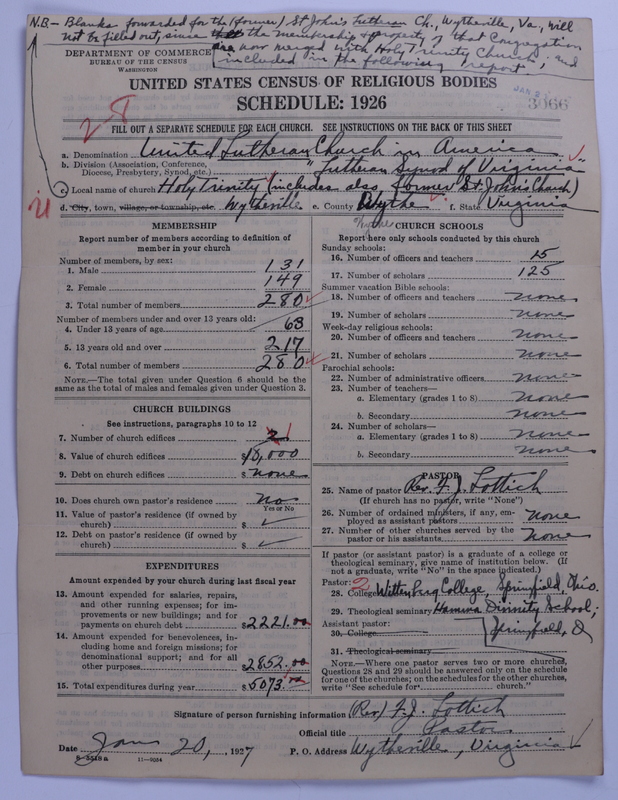 N.B.- Blanks forwarded for the (former) St John's Lutheran Ch., Wytheville, Va., will
not be filled out, since the membership & property of that Congregation
are now merged with Holy Trinity Church, and
included in the following report.
DEPARTMENT OF COMMERCE
BUREAU OF THE CENSUS
WASHINGTON
UNITED STATES CENSUS OF RELIGIOUS BODIES
SCHEDULE: 1926
JAN 2
3066
2-8
FILL OUT A SEPARATE SCHEDULE FOR EACH CHURCH. SEE INSTRUCTIONS ON THE BACK OF THIS SHEET
a. Denomination United Lutheran Church in America
b. Division (Association, Conference,
Diocese, Presbytery, Synod, etc.) "Lutheran Synod of Virginia"
c. Local name of church Holy Trinity (includes also, former St John's Church)
d. City, town, village, or township, etc. Wytheville e. County Wythe f. State Virginia
Wythe
MEMBERSHIP
Report number of members according to definition of
member in your church
Number of members, by sex:
1. Male 131
2. Female 149
3. Total number of members 280
Number of members under and over 13 years old:
4. Under 13 years of age 63
5. 13 years old and over 217
6. Total number of members 280
NOTE.—The total given under Question 6 should be the
same as the total of males and females given under Question 3.
CHURCH BUILDINGS
See instructions, paragraphs 10 to 12
7. Number of church edifices 2 1
8. Value of church edifices $18,000
9. Debt on church edifices $ none
10. Does church own pastor's residence No
Yes or No
11. Value of pastor's residence (if owned by
church) $
12. Debt on pastor's residence (if owned by
church) $
EXPENDITURES
Amount expended by your church during last fiscal year
13. Amount expended for salaries, repairs,
and other running expenses; for im-
provements or new buildings; and for
payments on church debt $2221.00
14. Amount expended for benevolences, in-
cluding home and foreign missions; for
denominational support; and for all
other purposes $2852.00
15. Total expenditures during year $5073.00
CHURCH SCHOOLS
Report here only schools conducted by this church
Sunday schools:
16. Number of officers and teachers 15
17. Number of scholars 125
Summer vacation Bible schools:
18. Number of officers and teachers none
19. Number of scholars none
Week-day religious schools:
20. Number of officers and teachers none
21. Number of scholars none
Parochial schools:
22. Number of administrative officers none
23. Number of teachers—
a. Elementary (grades 1 to 8) none
b. Secondary none
24. Number of scholars—
a. Elementary (grades 1 to 8) none
b. Secondary none
PASTOR
25. Name of pastor Rev. F. J. Lottich
(If church has no pastor, write "None")
26. Number of ordained ministers, if any, em-
ployed as assistant pastors none
27. Number of other churches served by the
pastor or his assistants none
If pastor (or assistant pastor) is a graduate of a college or
theological seminary, give name of institution below. (If
not a graduate, write "No" in the space indicated.)
Pastor: 2
28. College Wittenburg College, Springfield, Ohio.
29. Theological seminary Hamma Divinity School;
Assistant pastor: Springfield, O
30. College
31. Theological seminary
NOTE.—Where one pastor serves two or more churches,
Questions 28 and 29 should be answered only on the schedule
for one of the churches; on the schedules for the other churches,
write "See schedule for church."
Signature of person furnishing information (Rev) F. J. Lottich
Official title Pastor
Date Jan 20, 1927 P. O. Address Wytheville, Virginia
8-5518a 11—9034